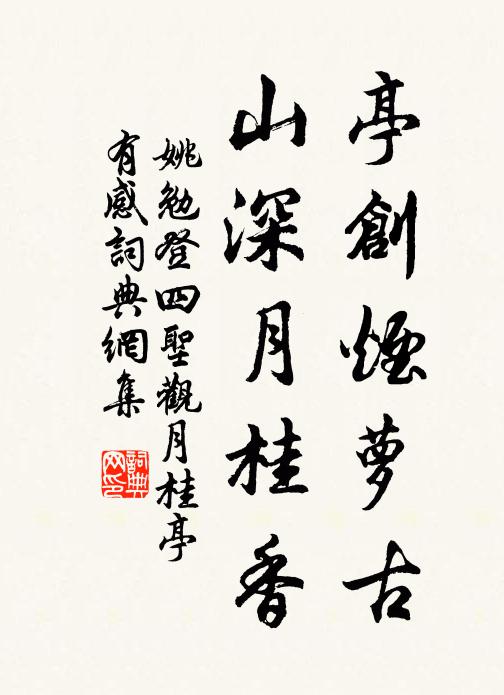 亭創煙萝古
山深月桂香
姚勉登四聖觀月桂亭
有感詞典網集
詞典网印